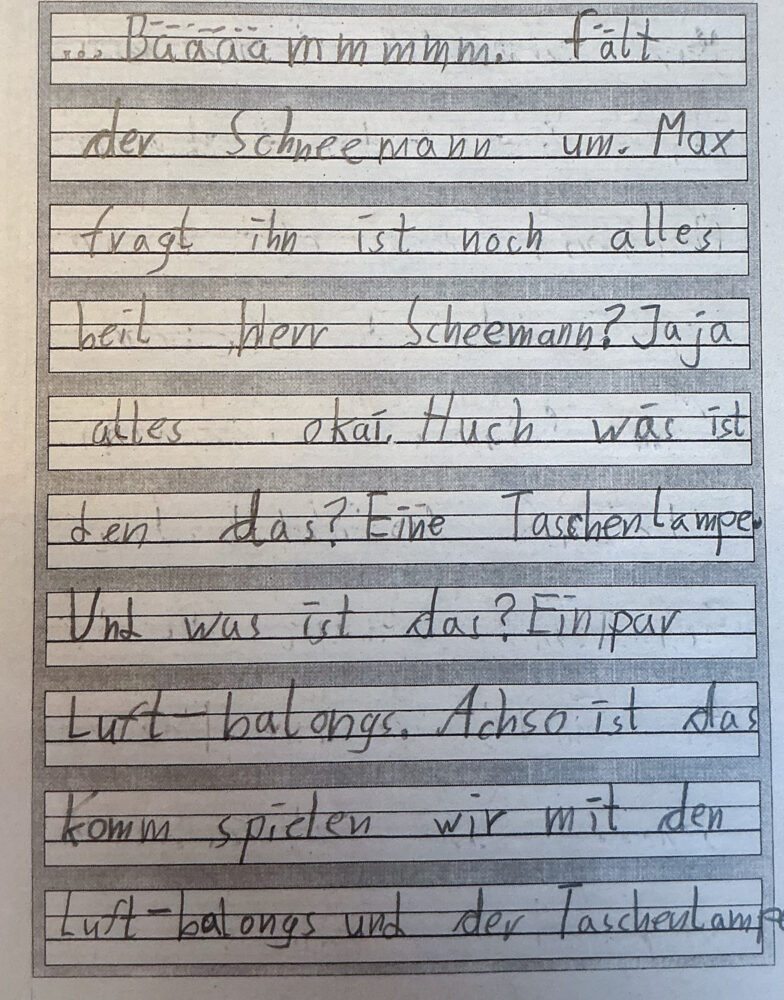 ... Bäääämmmmm. fält
der Schneemann um. Max
fragt ihn ist noch alles
heil Herr Scheemann? Jaja
alles okai. Huch was ist
den das? Eine Taschenlampe.
Und was ist das? Ein par
Luft-balongs. Achso ist das
komm spielen wir mit den
Luft-balongs und der Taschenlampe